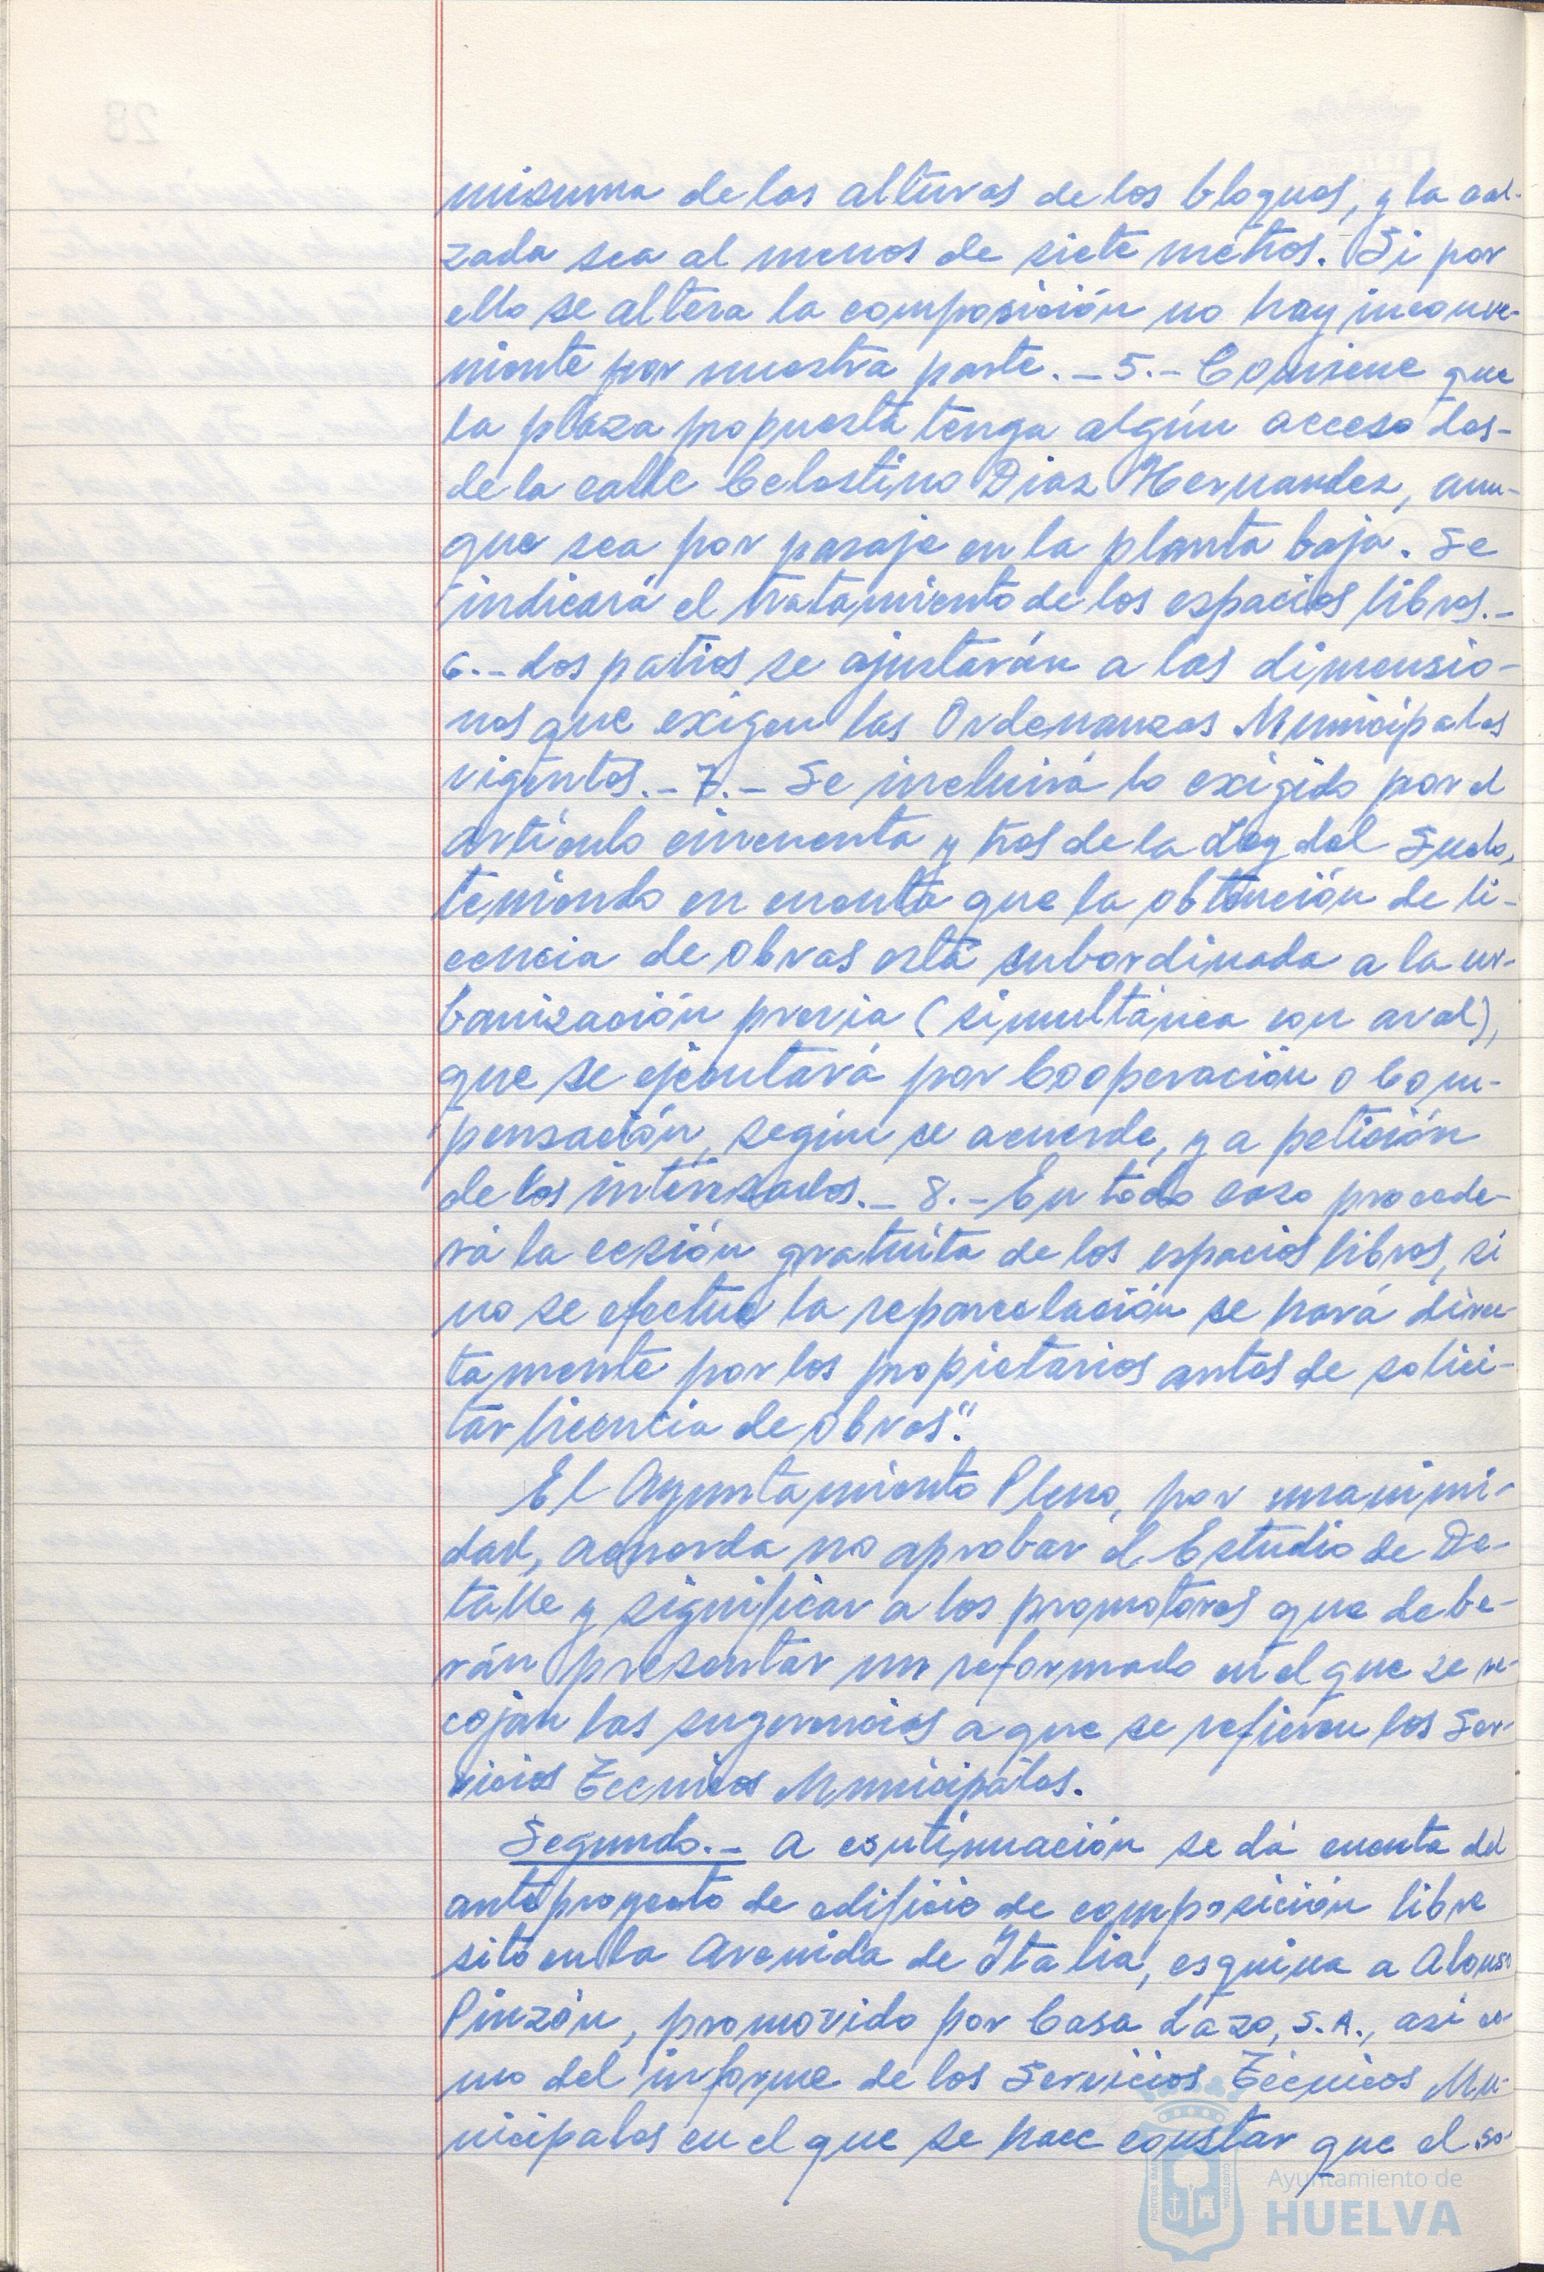 misma de las alturas de los bloques, y la cal-
zada sea al menos de siete metros. Si por
ello se altera la composición no hay inconve-
niente por nuestra parte. - 5. - Conviene que
la plaza propuesta tenga algún acceso des-
de la calle Celestino Diaz Hernandez, aun-
que sea por pasaje en la planta baja. Se
indicará el tratamiento de los espacios libres. -
6. - Los patios se ajustarán a las dimensio-
nes que exigen las Ordenanzas Municipales
vigentes. - 7. - Se incluirá lo exigido por el
artículo cincuenta y tres de la Ley del Suelo,
teniendo en cuenta que la obtención de li-
cencia de obras está subordinada a la ur-
banización previa (simultánea con aval),
que se ejecutará por Cooperación o Com-
pensación, según se acuerde, y a petición
de los interesados. - 8. - En todo caso procede-
rá la cesión gratuita de los espacios libres, si
no se efectue la reparcelación se hará direc-
tamente por los propietarios antes de solici-
tar licencia de obras".
El Ayuntamiento Pleno, por unanimi-
dad, acuerda no aprobar el Estudio de De-
talle y significar a los promotores que debe-
rán presentar un reformado en el que se re-
cojan las sugerencias a que se refieren los Ser-
vicios Técnicos Municipales.
Segundo. - A continuación se dá cuenta del
anteproyecto de edificio de composición libre
sito en la Avenida de Italia, esquina a Alonso
Pinzón, promovido por Casa Lazo, S.A., asi co-
mo del informe de los Servicios Técnicos Mu-
nicipales en el que se hace constar que el so-
Ayuntamiento de
HUELVA